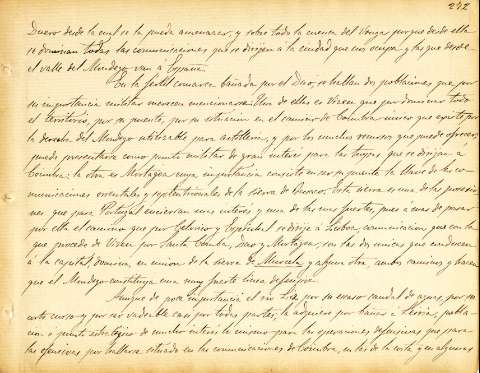 272
Duero desde la cual se la pueda amenazar, y sobre todo la cuenca del Vouga porque desde ella
se dominan todas las comunicaciones que se dirijen a la ciudad que nos ocupa y las que desde
el valle del Mondego van á España.
En la fertil comarca bañada por el Dao, se hallan dos poblaciones que por
su importancia militar merecen mencionarse. Una de ellas es Viseu que por dominar todo
el territorio, por su puente, por su situacion en el camino de Coimbra unico que existe por
la derecha del Mondego utilizable para artilleria, y por los muchos recursos que puede ofrecer,
puede presentarse como punto militar de gran interés para las tropas que se dirijan á
Coimbra; la otra es Mortagoa cuya importancia consiste en ser su puente la llave de las co-
municaciones orientales y septentrionales de la sierra de Busaco. Esta sierra es una de las posicio-
nes que para Portugal encierran mas interés y una de las mas fuertes, pues á mas de pasar
por ella el camino que por Celorico y se dirije á Lisboa, comunicacion que con la
que procede de Viseu por Santa Comba, Dao y Mortagoa, son las dos unicas que conducen
á la capital, domina, en union de la sierra de Murcela, y alguna otra, ambos caminos y hacen
que el Mondego constituya una muy fuerte linea defensiva.
Aunque de poca importancia el rio Liz por su escaso caudal de aguas, por su
corto curso y por ser vadeable casi por todas partes, la adquiere por bañar a Leiria, pobla-
cion o punto estratégico de mucho interés lo mismo para las operaciones defensivas que para
las ofensivas por hallarse situada en las comunicaciones de Coimbra, en las de la costa y en algunas